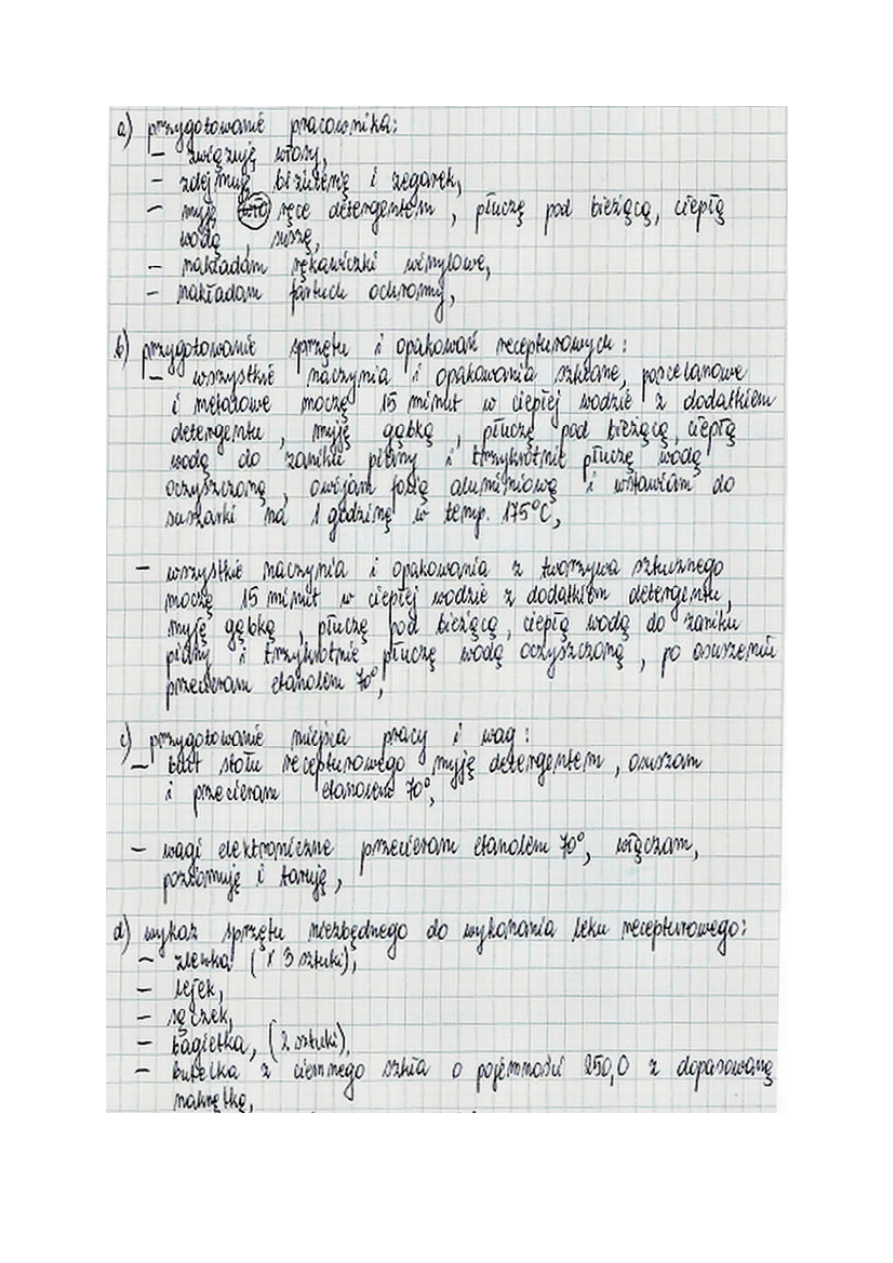 a) przygotowanie pracownika:
– związuję włosy,
– zdejmuję biżuterię i zegarek,
– myję ręce detergentem, płuczę pod bieżącą, ciepłą
wodą, suszę,
– nakładam rękawiczki winylowe,
– nakładam fartuch ochronny,
b) przygotowanie sprzętu i opakowań recepturowych:
– wszystkie naczynia i opakowania szklane, porcelanowe
i metalowe moczę 15 minut w ciepłej wodzie z dodatkiem
detergentu, myję gąbką, płuczę pod bieżącą, ciepłą
wodą do zaniku piany i trzykrotnie płuczę wodą
oczyszczoną, owijam folią aluminiową i wstawiam do
suszarki na 1 godzinę w temp. 175°C,
– wszystkie naczynia i opakowania z tworzywa sztucznego
moczę 15 minut w ciepłej wodzie z dodatkiem detergentu,
myję gąbką, płuczę pod bieżącą, ciepłą wodą do zaniku
piany i trzykrotnie płuczę wodą oczyszczoną, po osuszeniu
przecieram etanolem 70°,
c) przygotowanie miejsca pracy i wag:
– blat stołu recepturowego myję detergentem, osuszam
i przecieram etanolem 70°,
– wagi elektroniczne przecieram etanolem 70°, włączam,
poziomuję i taruję,
d) wykaz sprzętu niezbędnego do wykonania leku recepturowego:
– zlewka (x 3 sztuki),
– lejek,
– sączek,
– bagietka, (2 sztuki),
– butelka z ciemnego szkła o pojemności 250,0 z dopasowaną
nakrętką,